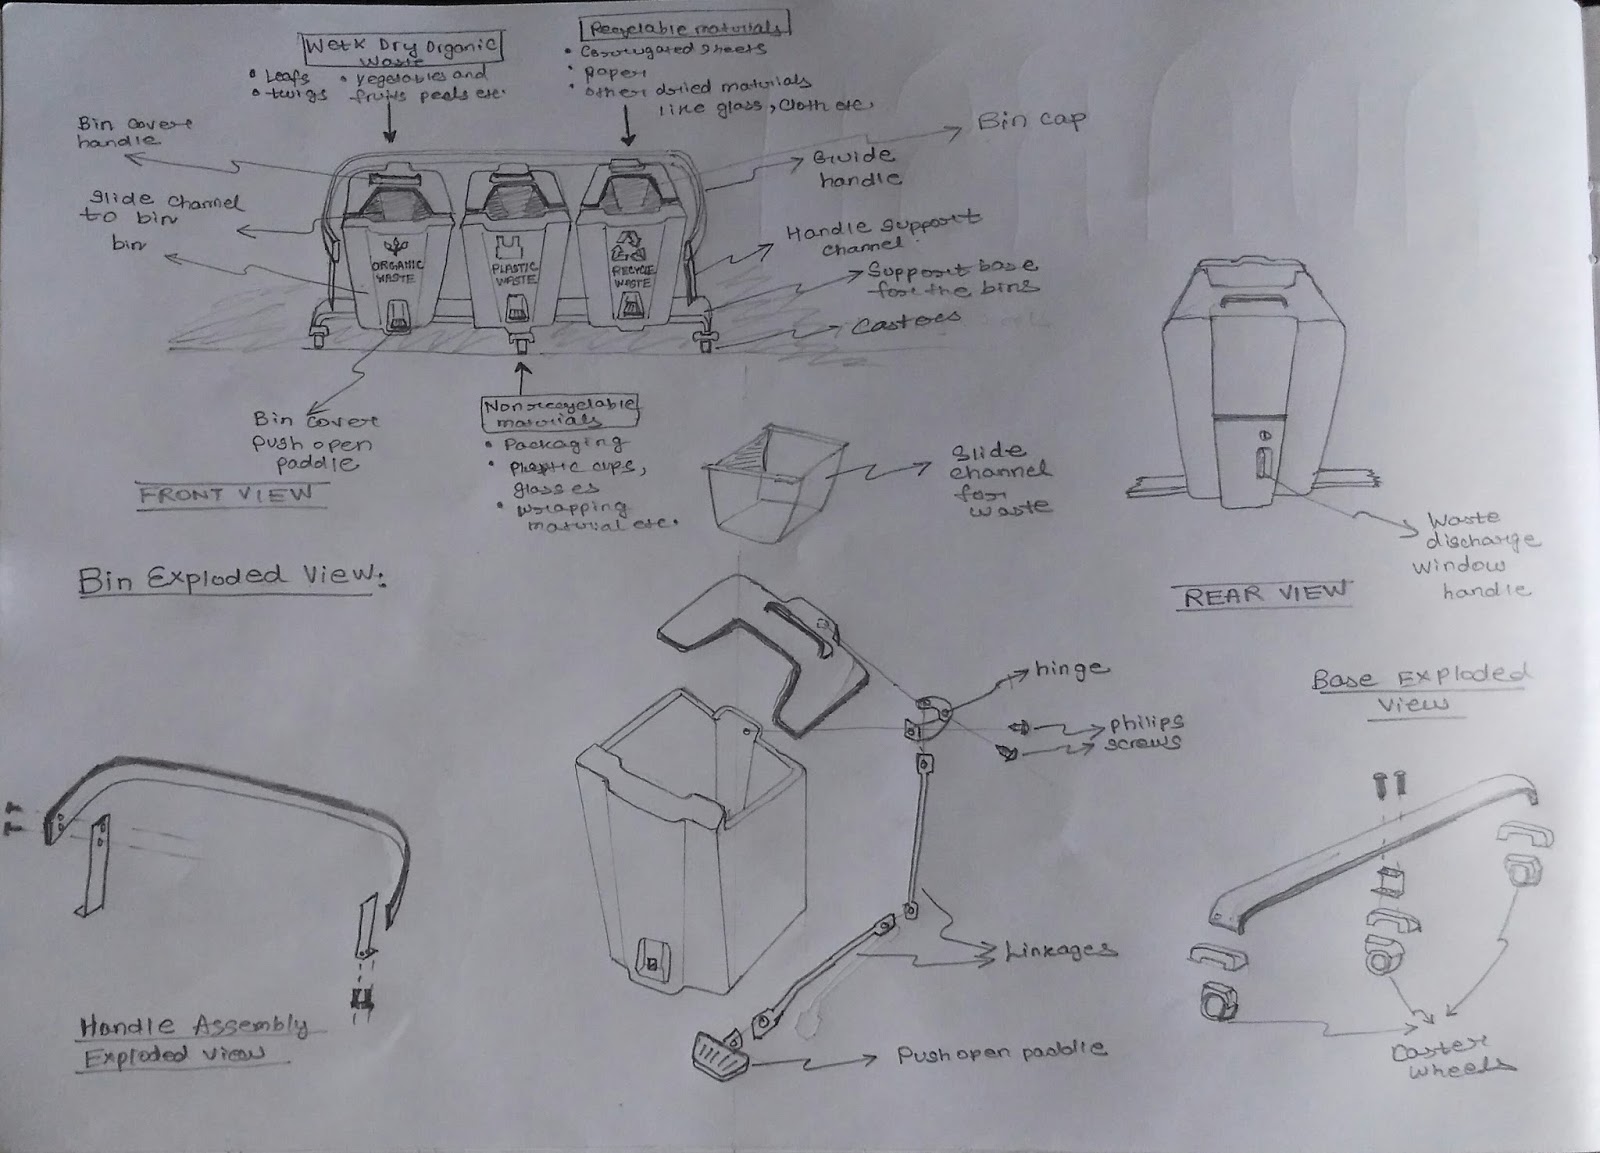 Wet & Dry Organic
Waste
• Leafs
• twigs
• vegetables and
fruits peels etc.
Recyclable materials
• Corrugated sheets
• paper
• other dried materials
like glass, cloth etc.
Bin cover
handle
Slide channel
to bin
bin
Bin cap
Guide
handle
Handle support
channel.
Support base
for the bins
Castors
ORGANIC
WASTE
PLASTIC
WASTE
RECYCLE
WASTE
Bin cover
push open
paddle
FRONT VIEW
Non recyclable
materials
• Packaging
• plastic cups,
glasses
• wrapping
material etc.
Slide
channel
for
waste
Waste
discharge
window
handle
REAR VIEW
Bin Exploded View:
hinge
philips
screws
Linkages
Push open paddle
Handle Assembly
Exploded view
Base Exploded
View
Caster
wheels